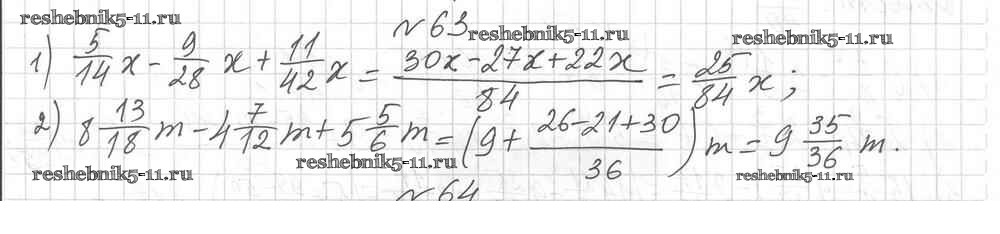 reshebnik5-11.ru
№ 63
reshebnik5-11.ru
reshebnik5-11.ru
1) 5/14 x - 9/28 x + 11/42 x = (30x - 27x + 22x)/84 = 25/84 x ;
2) 8 13/18 m - 4 7/12 m + 5 5/6 m = (9 + (26-21+30)/36) m = 9 35/36 m.
reshebnik5-11.ru
reshebnik5-11.ru
reshebnik5-11.ru
№ 64